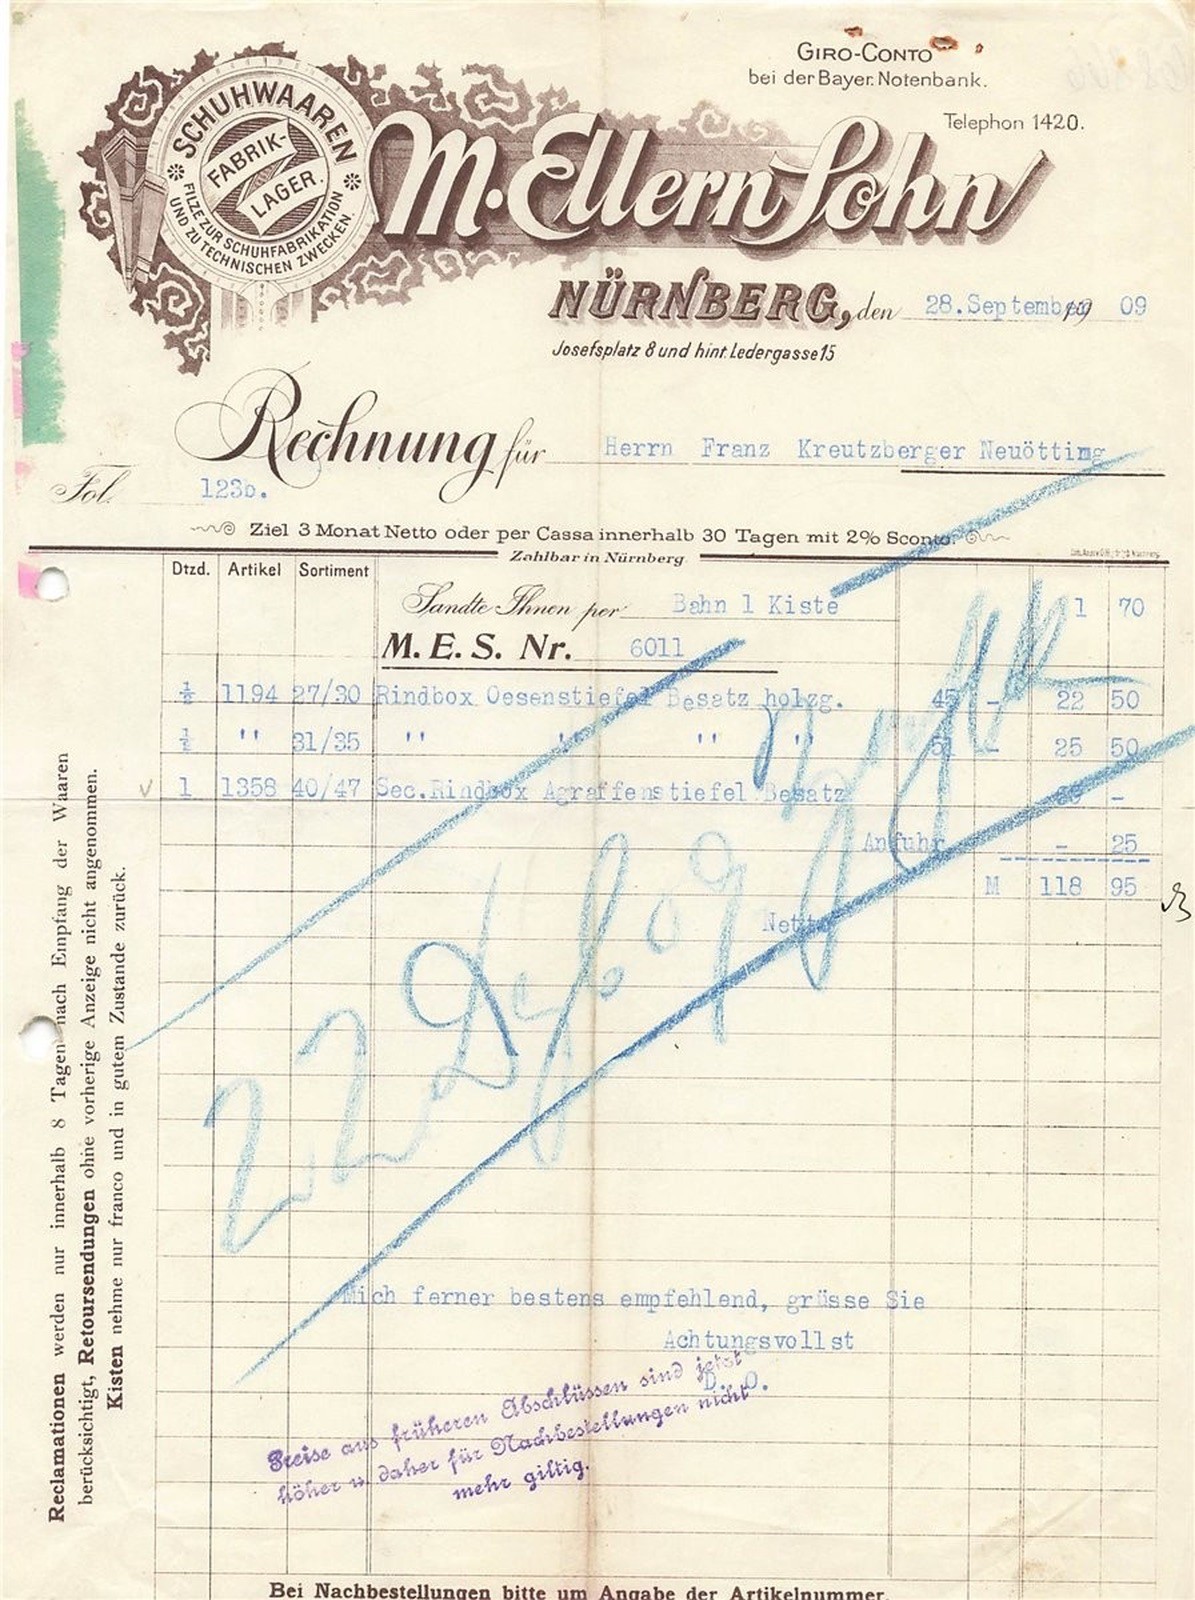 GIRO-CONTO
bei der Bayer. Notenbank.
Telephon 1420.
SCHUHWAAREN
FABRIK-
LAGER.
FILZE ZUR SCHUHFABRIKATION
UND ZU TECHNISCHEN ZWECKEN.
M. Ellern Sohn
NÜRNBERG, den 28. September 09
Josefsplatz 8 und hint. Ledergasse 15
Rechnung für Herrn Franz Kreutzberger Neuötting
Fol. 123b.
Ziel 3 Monat Netto oder per Cassa innerhalb 30 Tagen mit 2% Sconto.
Zahlbar in Nürnberg.
Dtzd. Artikel Sortiment
Sandte Ihnen per Bahn 1 Kiste 1 70
M. E. S. Nr. 6011
½ 1194 27/30 Rindbox Oesenstiefel Besatz holzg. 45 - 22 50
½ " 31/35 " " " " 51 - 25 50
1 1358 40/47 Sec.Rindbox Agraffenstiefel Besatz -
Anfuhr - 25
M 118 95
Netto
Mich ferner bestens empfehlend, grüsse Sie
Achtungsvollst
D. O.
Preise aus früheren Abschlüssen sind jetzt
höher u. daher für Nachbestellungen nicht
mehr giltig.
Reclamationen werden nur innerhalb 8 Tagen nach Empfang der Waaren
berücksichtigt, Retoursendungen ohne vorherige Anzeige nicht angenommen.
Kisten nehme nur franco und in gutem Zustande zurück.
Bei Nachbestellungen bitte um Angabe der Artikelnummer.